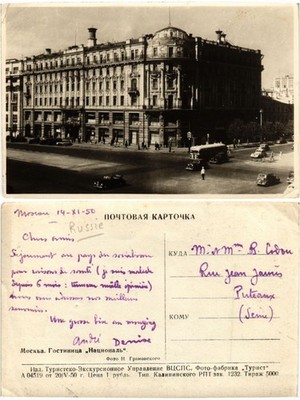 Moscou 14-XI-50
Russie
ПОЧТОВАЯ КАРТОЧКА
Chers amis,
Séjournant au pays du
pour raisons de santé (je suis malade
depuis 6 mois :
nous vous adressons nos meilleurs
souvenirs.
André Denise
КУДА M. et Mme R.
Rue Jean Jaurès
Puteaux
КОМУ (Seine)
Москва. Гостиница „Националь“
Фото Н. Грановского
Изд. Туристско-Экскурсионное Управление ВЦСПС. Фото-фабрика „Турист“
А 04519 от 20/V-50 г. Цена 1 рубль. Тип. Калининского РПТ зак. 1232. Тираж 5000